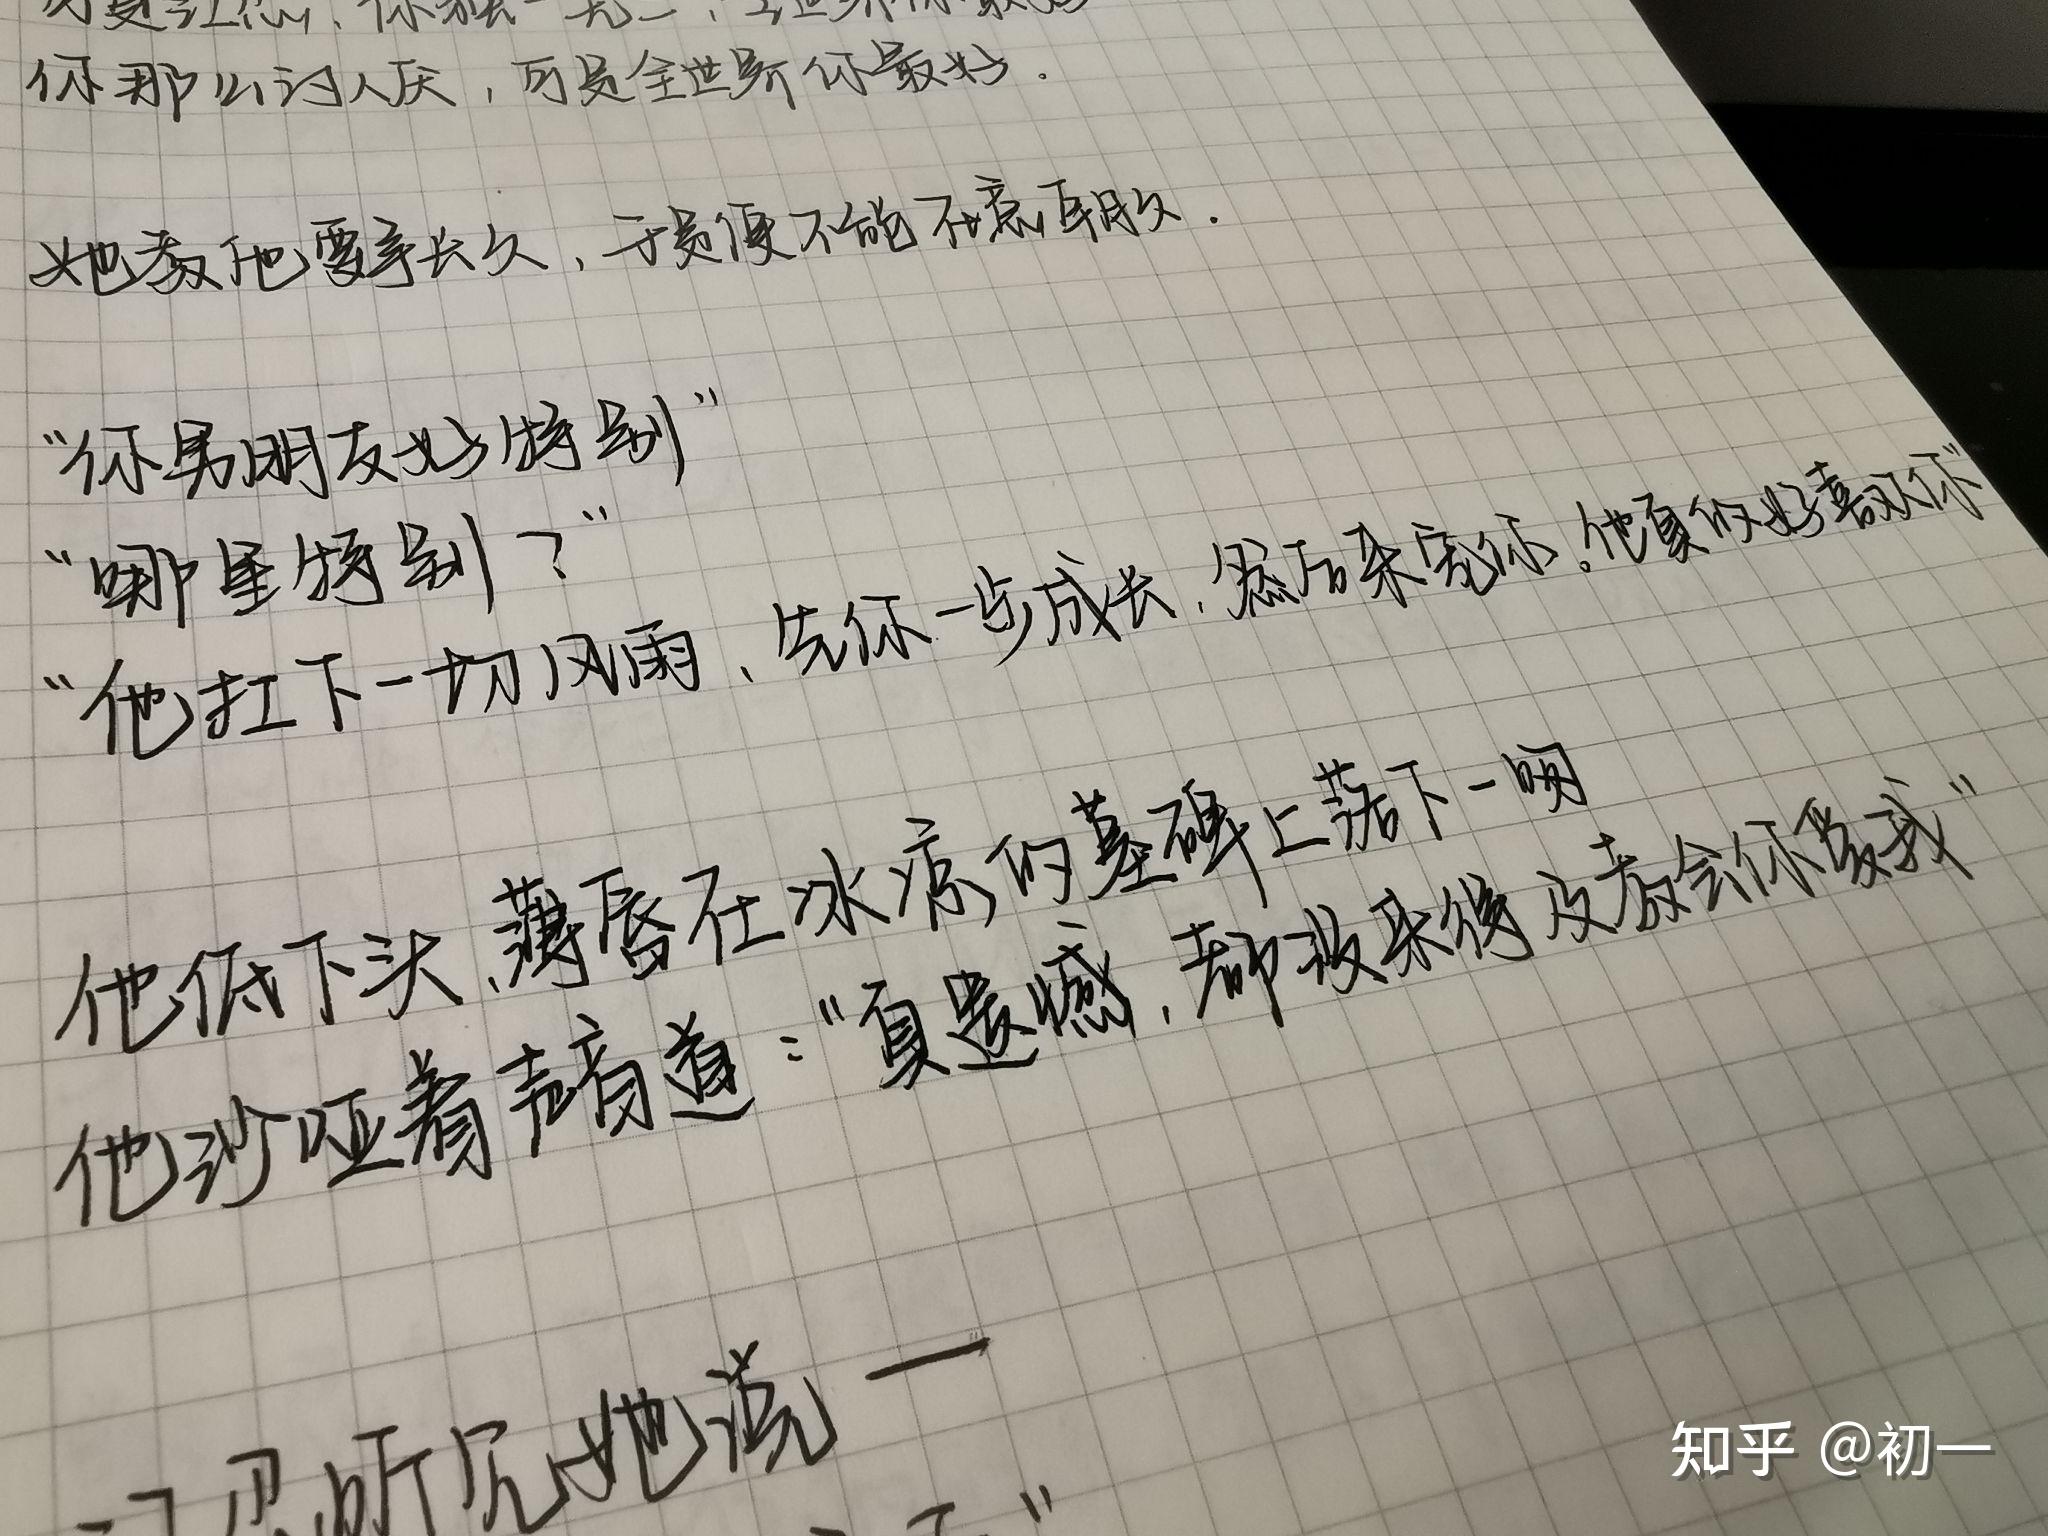 你那么讨人厌，可是全世界你最好．
她教他要争长久，于是便不能在意朝夕．
“你男朋友好特别”
“哪里特别？”
“他扛下一切风雨、先你一步成长，然后来宠你。他真的好喜欢你”
他低下头，薄唇在冰凉的墓碑上落下一吻
他沙哑着声音道：“真遗憾，都没来得及教会你爱我”
听见她说一
知乎 @初一